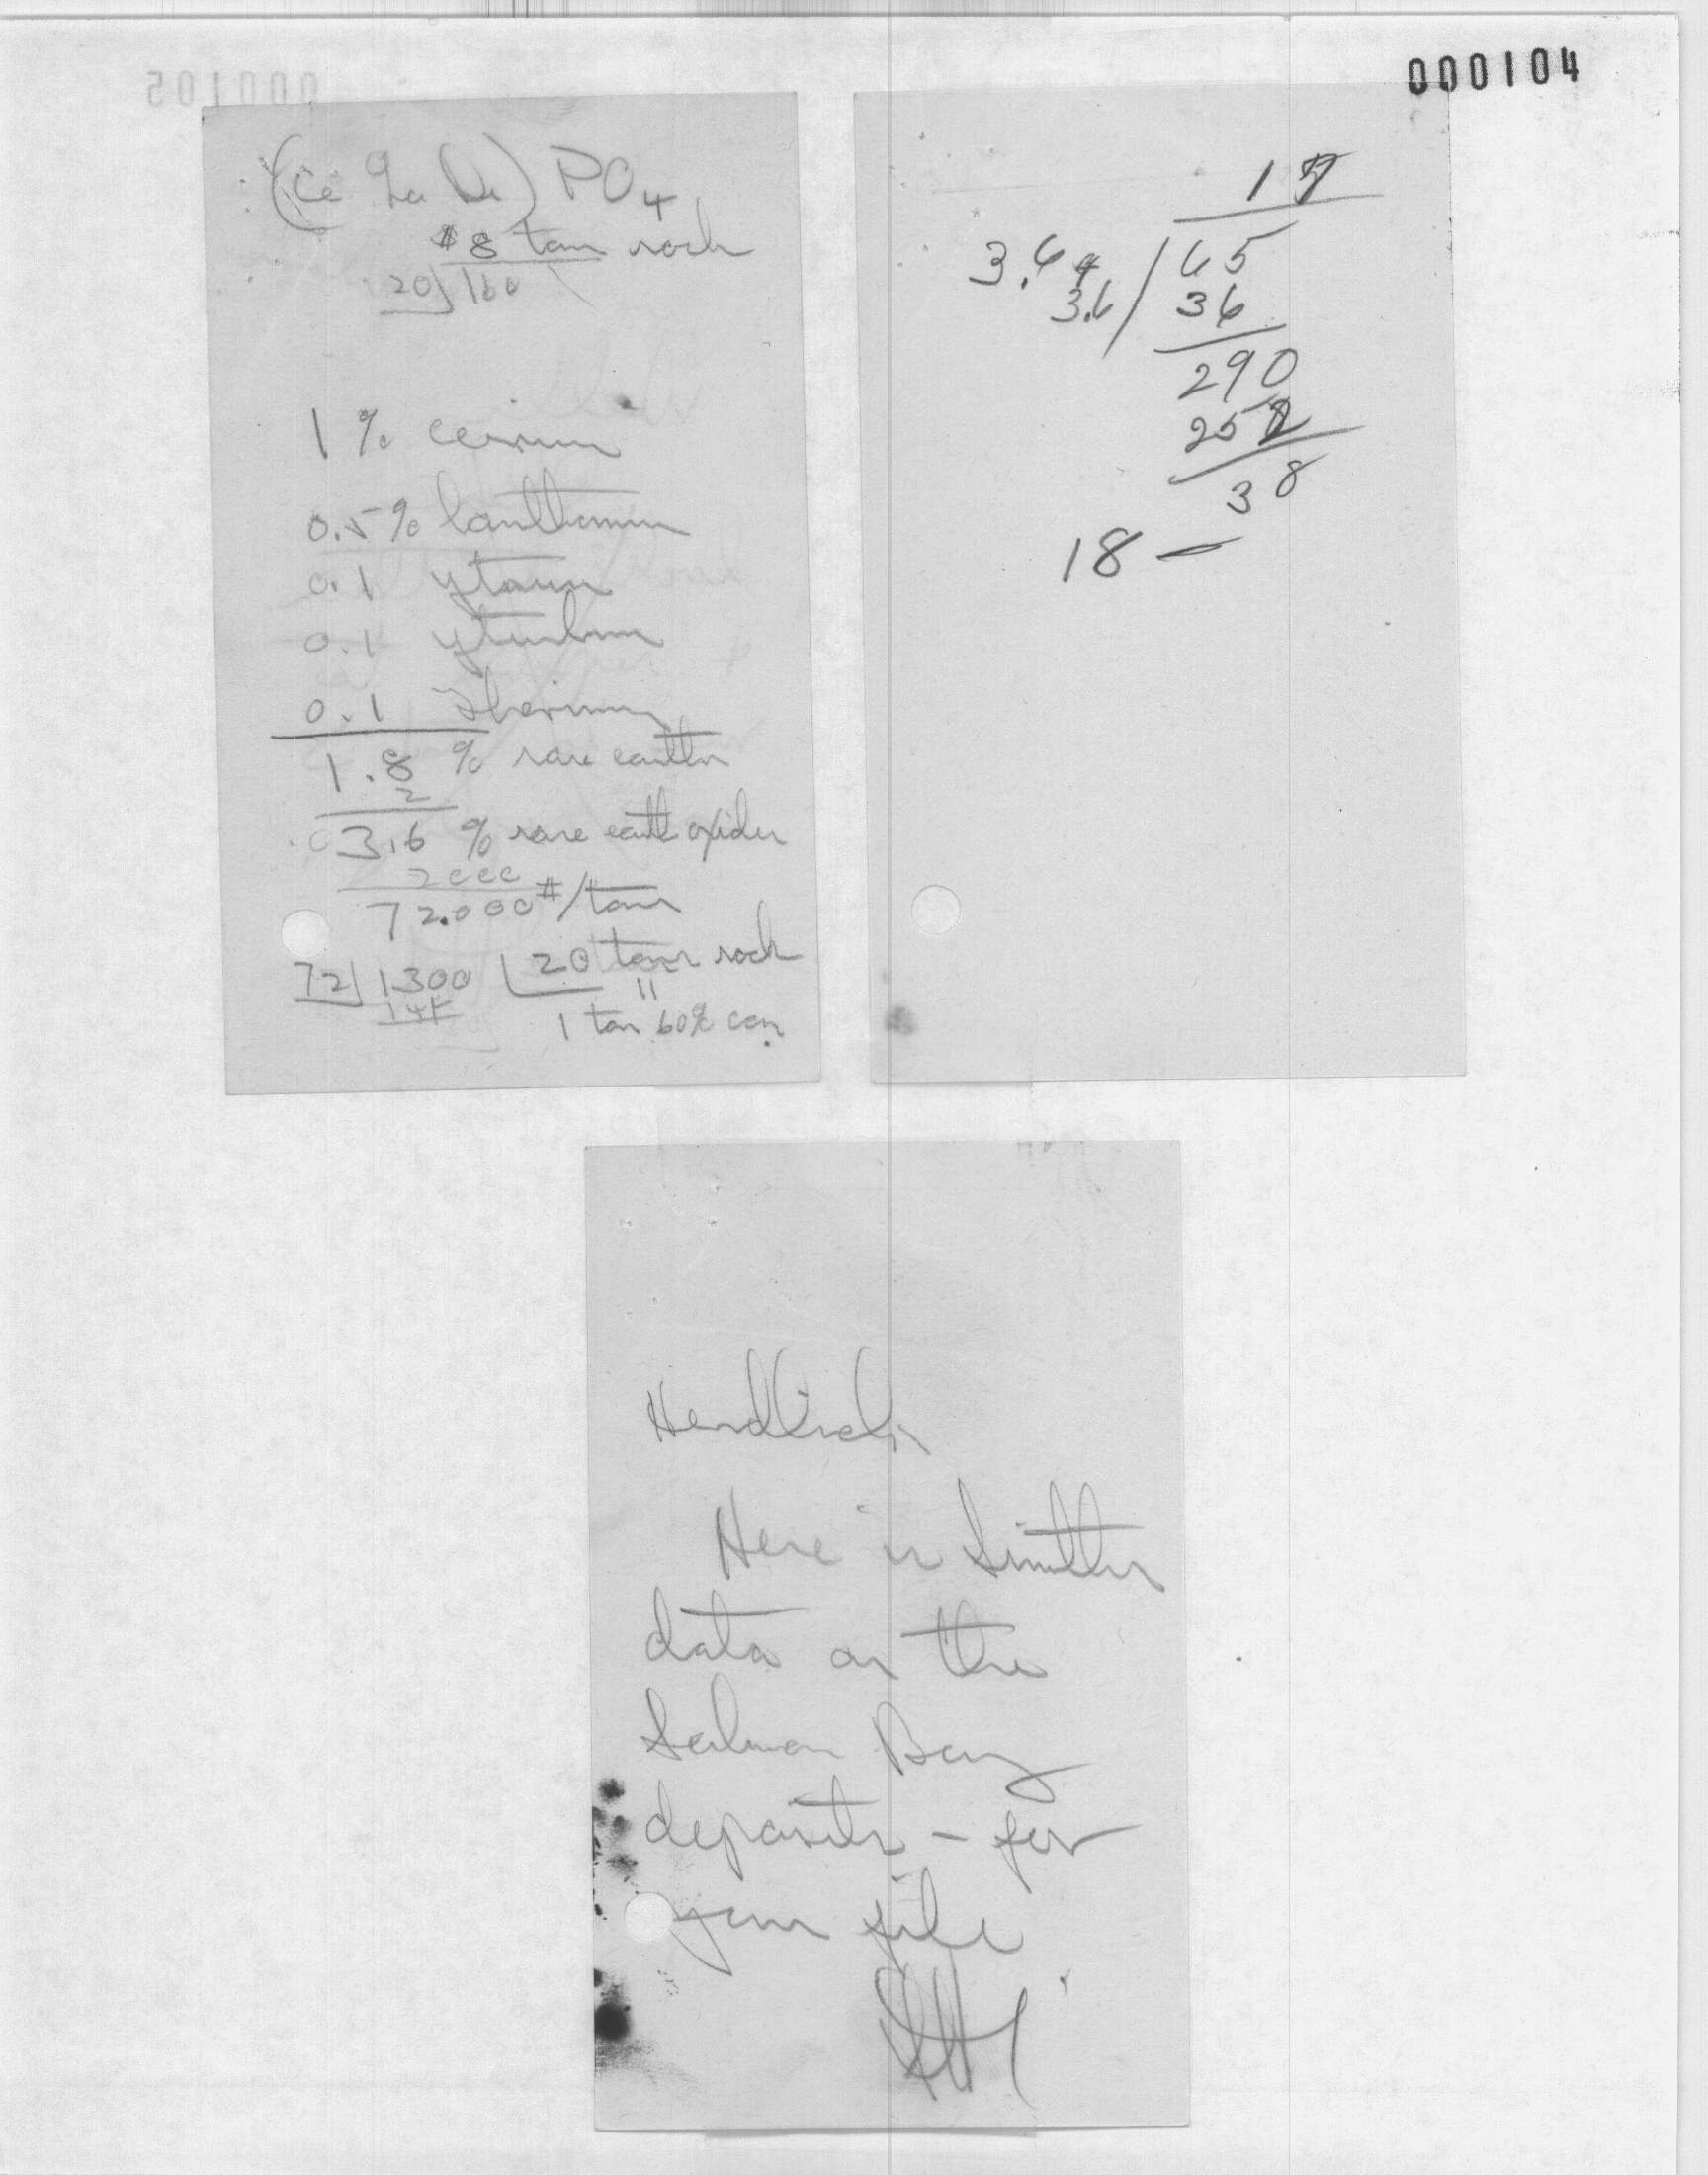 000104
(Ce La Di) PO4
$8 ton rock
20 160
1 % cerium
0.5 % lanthanum
0.1 yttrium
0.1 ytterbium
0.1
1.8 % rare earths
2
3.6 % rare earth oxides
2000
72.000 #/ton
72 1300 20 tons rock
144 "
1 ton 60% con.
17
3.64 / 65
3.6 36
290
252
38
18 —
Here is
data on the
Salmon Bay
deposits - for
your file